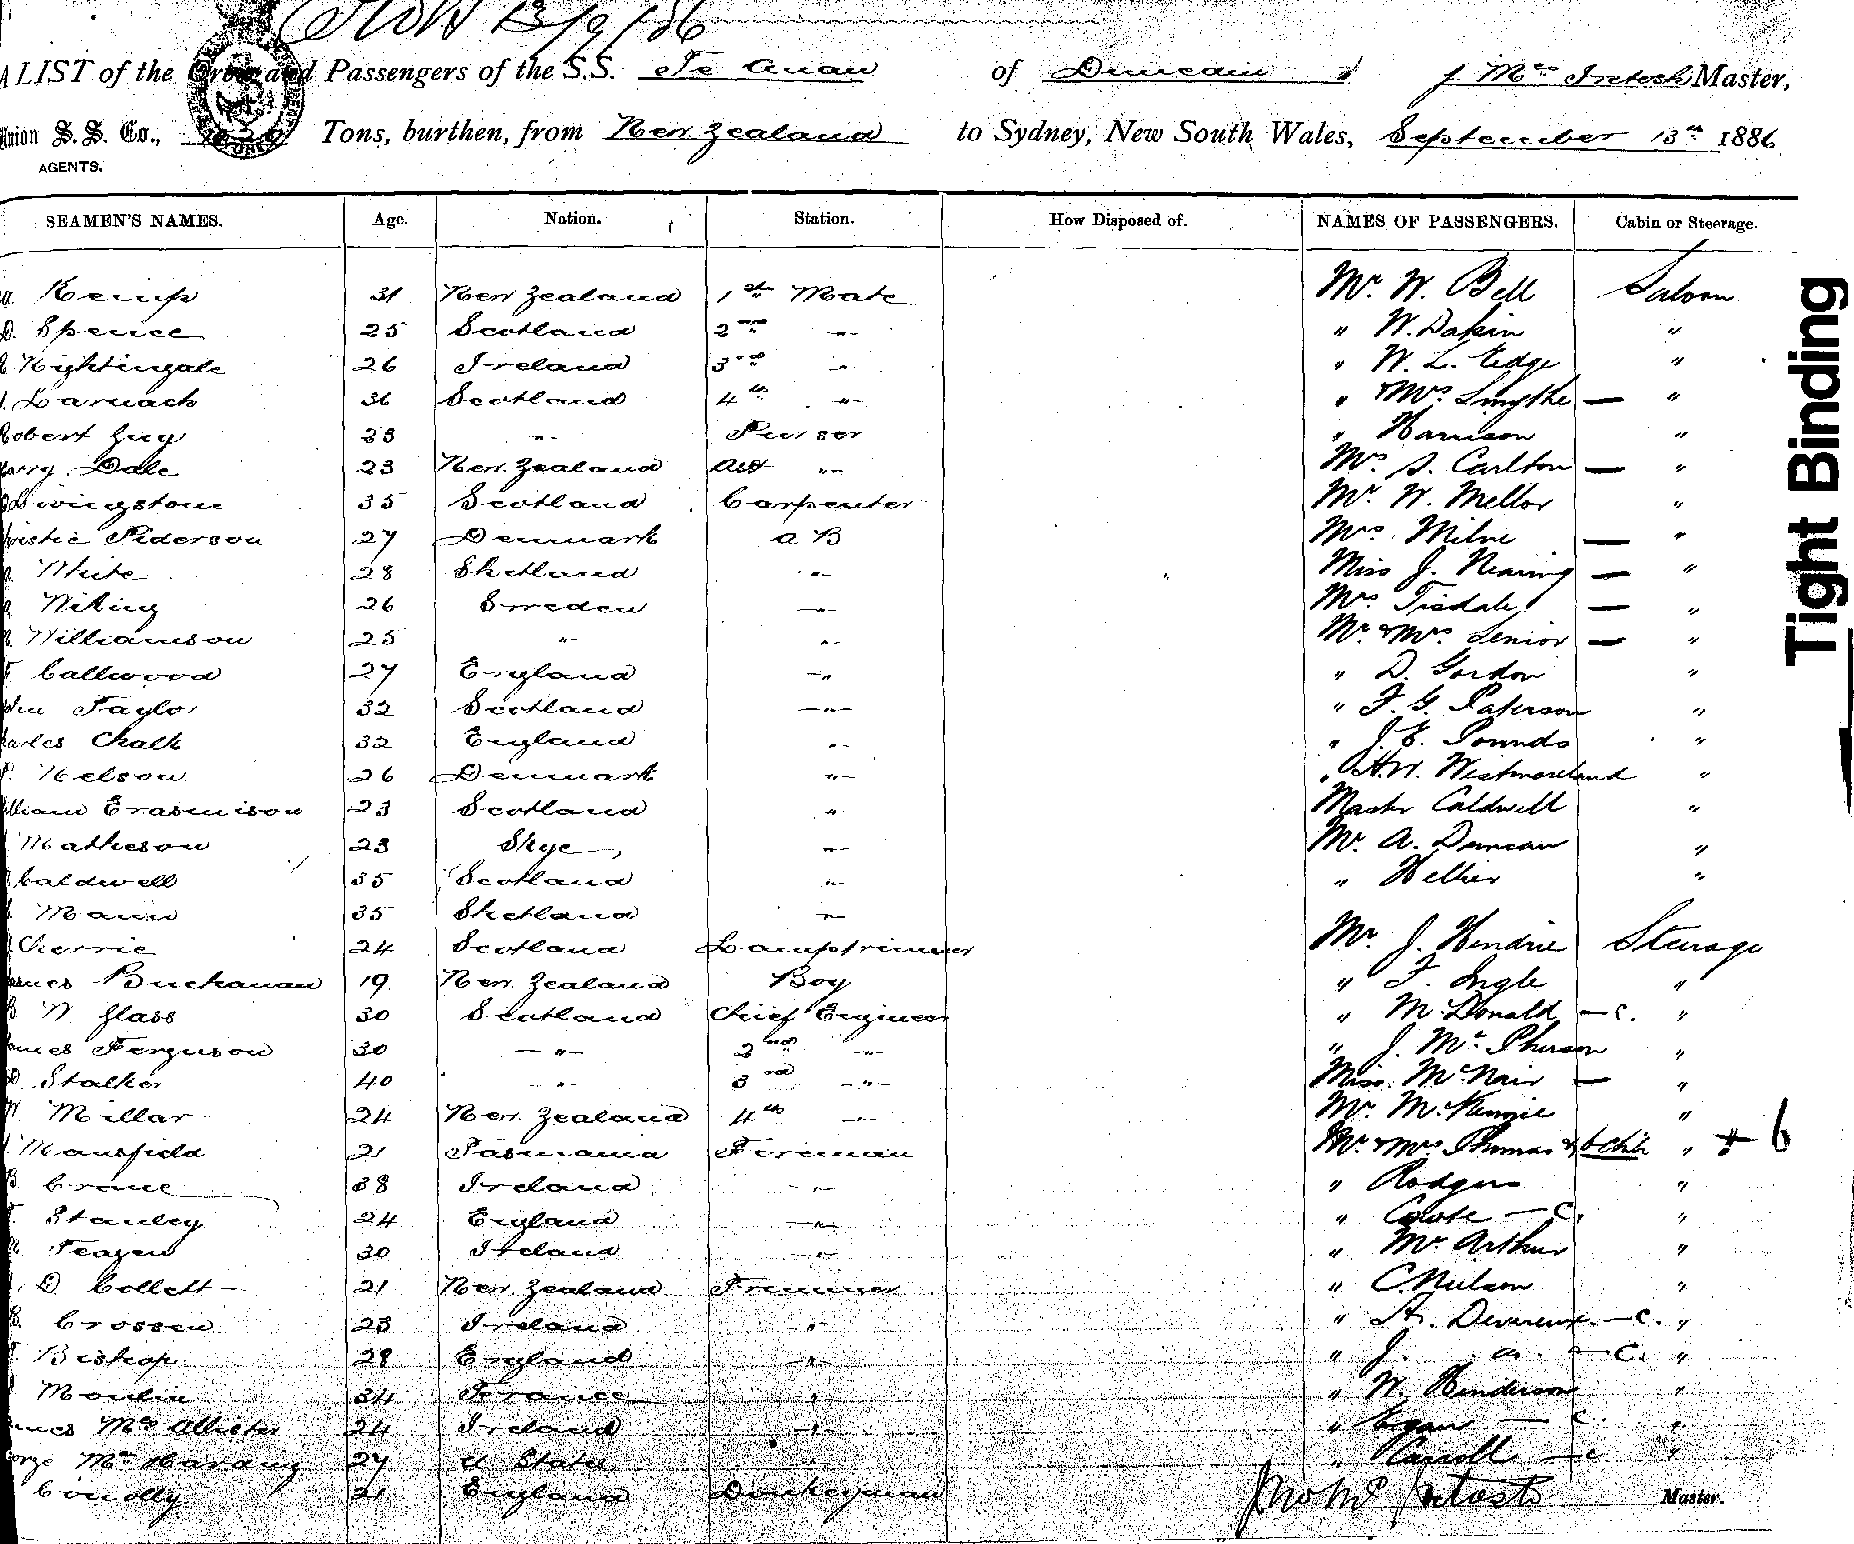 13/9/86
A LIST of the Crew and Passengers of the S.S. Te Anau of Dunedin J McIntosh Master,
Union S.S. Co., Tons, burthen, from New Zealand to Sydney, New South Wales, September 13th 1886
AGENTS.
SEAMEN'S NAMES. Age. Nation. Station. How Disposed of. NAMES OF PASSENGERS. Cabin or Steerage.
Kemp 31 New Zealand 1st Mate Mr. W. Bell Saloon
D. Spence 25 Scotland 2nd " " W. Dakin "
Nightingale 26 Ireland 3rd " " W. L. Edge "
Larnach 36 Scotland 4th " " & Mrs Smythe — "
Robert Guy 23 " Purser " Harrison "
Harry Dale 23 New Zealand Asst " Mrs. S. Carlton — "
Livingstone 35 Scotland Carpenter Mr. W. Mellor "
Christie Piderson 27 Denmark A B Mrs. Milne — "
White 28 Shetland " Miss J. Nearing — "
Wiking 26 Sweden " Mrs Tisdale — "
Williamson 25 " " Mr. & Mrs. Senior — "
Callwood 27 England " " D. Gordon "
John Taylor 32 Scotland " " F. G. Paterson "
Charles Chalk 32 England " " J. E. Pounds "
Nelson 26 Denmark " " H. W. Westmoreland "
William Erasmison 23 Scotland " Master Caldwell "
Matheson 23 Skye " Mr. A. Duncan "
Caldwell 35 Scotland " " Hellier "
Mann 35 Shetland "
Cherrie 24 Scotland Lamptrimmer Mr. J. Hendrie Steerage
James Buchanan 19 New Zealand Boy " F. Ingle "
W. Glass 30 Scotland Chief Engineer " McDonald — c. "
James Ferguson 30 " 2nd " " J. McPherson "
D. Stalker 40 " 3rd " Miss. McNair — "
W Millar 24 New Zealand 4th " Mr. McKenzie "
Mansfield 21 Tasmania Fireman Mr. & Mrs Thomas & 6 chn " + 6
Crane 38 Ireland " " Rodgers "
Stanley 24 England " " — C. "
Teazen 30 Ireland " " McArthur "
D Collett 21 New Zealand Trimmer " C. Neilson "
Crossen 23 Ireland " " A. Devereux — c. "
Bishop 28 England " " J. " — c. "
Moulin 34 France " " W. Henderson "
James McAllister 24 Ireland " " Egan — c. "
George 27 U States " " Carroll — c "
Conolly 21 England Donkeyman Jno McIntosh Master.
Tight Binding